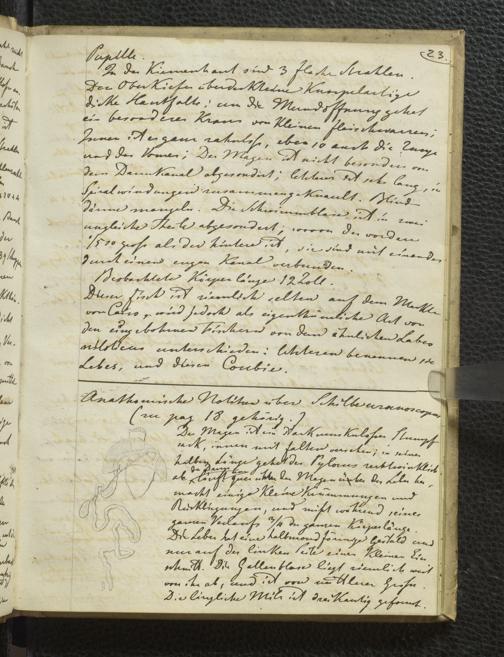 23.
Pupille.
In der Kiemenhaut sind 3 flache Strahlen.
Der Oberkiefer kleine knorpelartige
dicke Hautfalte; um die Mundöffnung gehet
ein besonderer Kranz von kleinen Fleischwarzen;
Innen ist er ganz zahnlos, eben so auch die Zunge
und der Vomer; Der Magen ist nicht besonders von
dem Darmkanal abgesondert; letzterer ist sehr lang, in
Spiralwindungen zusammengeknault. Blind-
därme mangeln. Die Schwimmblase ist in zwei
ungleiche Theile abgesondert, wovon der vordere
1/5 so gross als der hintere ist, sie sind mit einander
durch einen engen Kanal verbunden.
Beobachtete Körperlänge 12 Zoll.
Dieser Fisch ist ziemlich selten auf dem Markte
von Cairo, wird jedoch als eigenthümliche Art von
den eingebohrnen Fischern von dem ähnlichen Labeo
niloticus unterschieden; letzteren benennen sie
Lebes, und diesen Coubie.
Anathomische Notitzen über Schilbe uranoscopus
(zu pag 18 gehörig.)
Der Magen ist ein stark muskulöser Stumpf
sack, innen mit Falten versehen; in seiner
halben Länge gehet der Pylorus rechtwinklich
ab, der Darm läuft quer den Magen der Leber
macht einige kleine Krümmungen und
Biegungen, und misst während seines
ganzen Verlaufs der ganzen Körperlänge.
Die Leber hat eine halbmondförmige Gestalt und
nur auf der linken Seite einen kleinen Ein-
schnitt. Die Gallenblase liegt ziemlich weit
von ihr ab, und ist von mittlerer Grösse
Die längliche Milz ist dreikantig geformt.